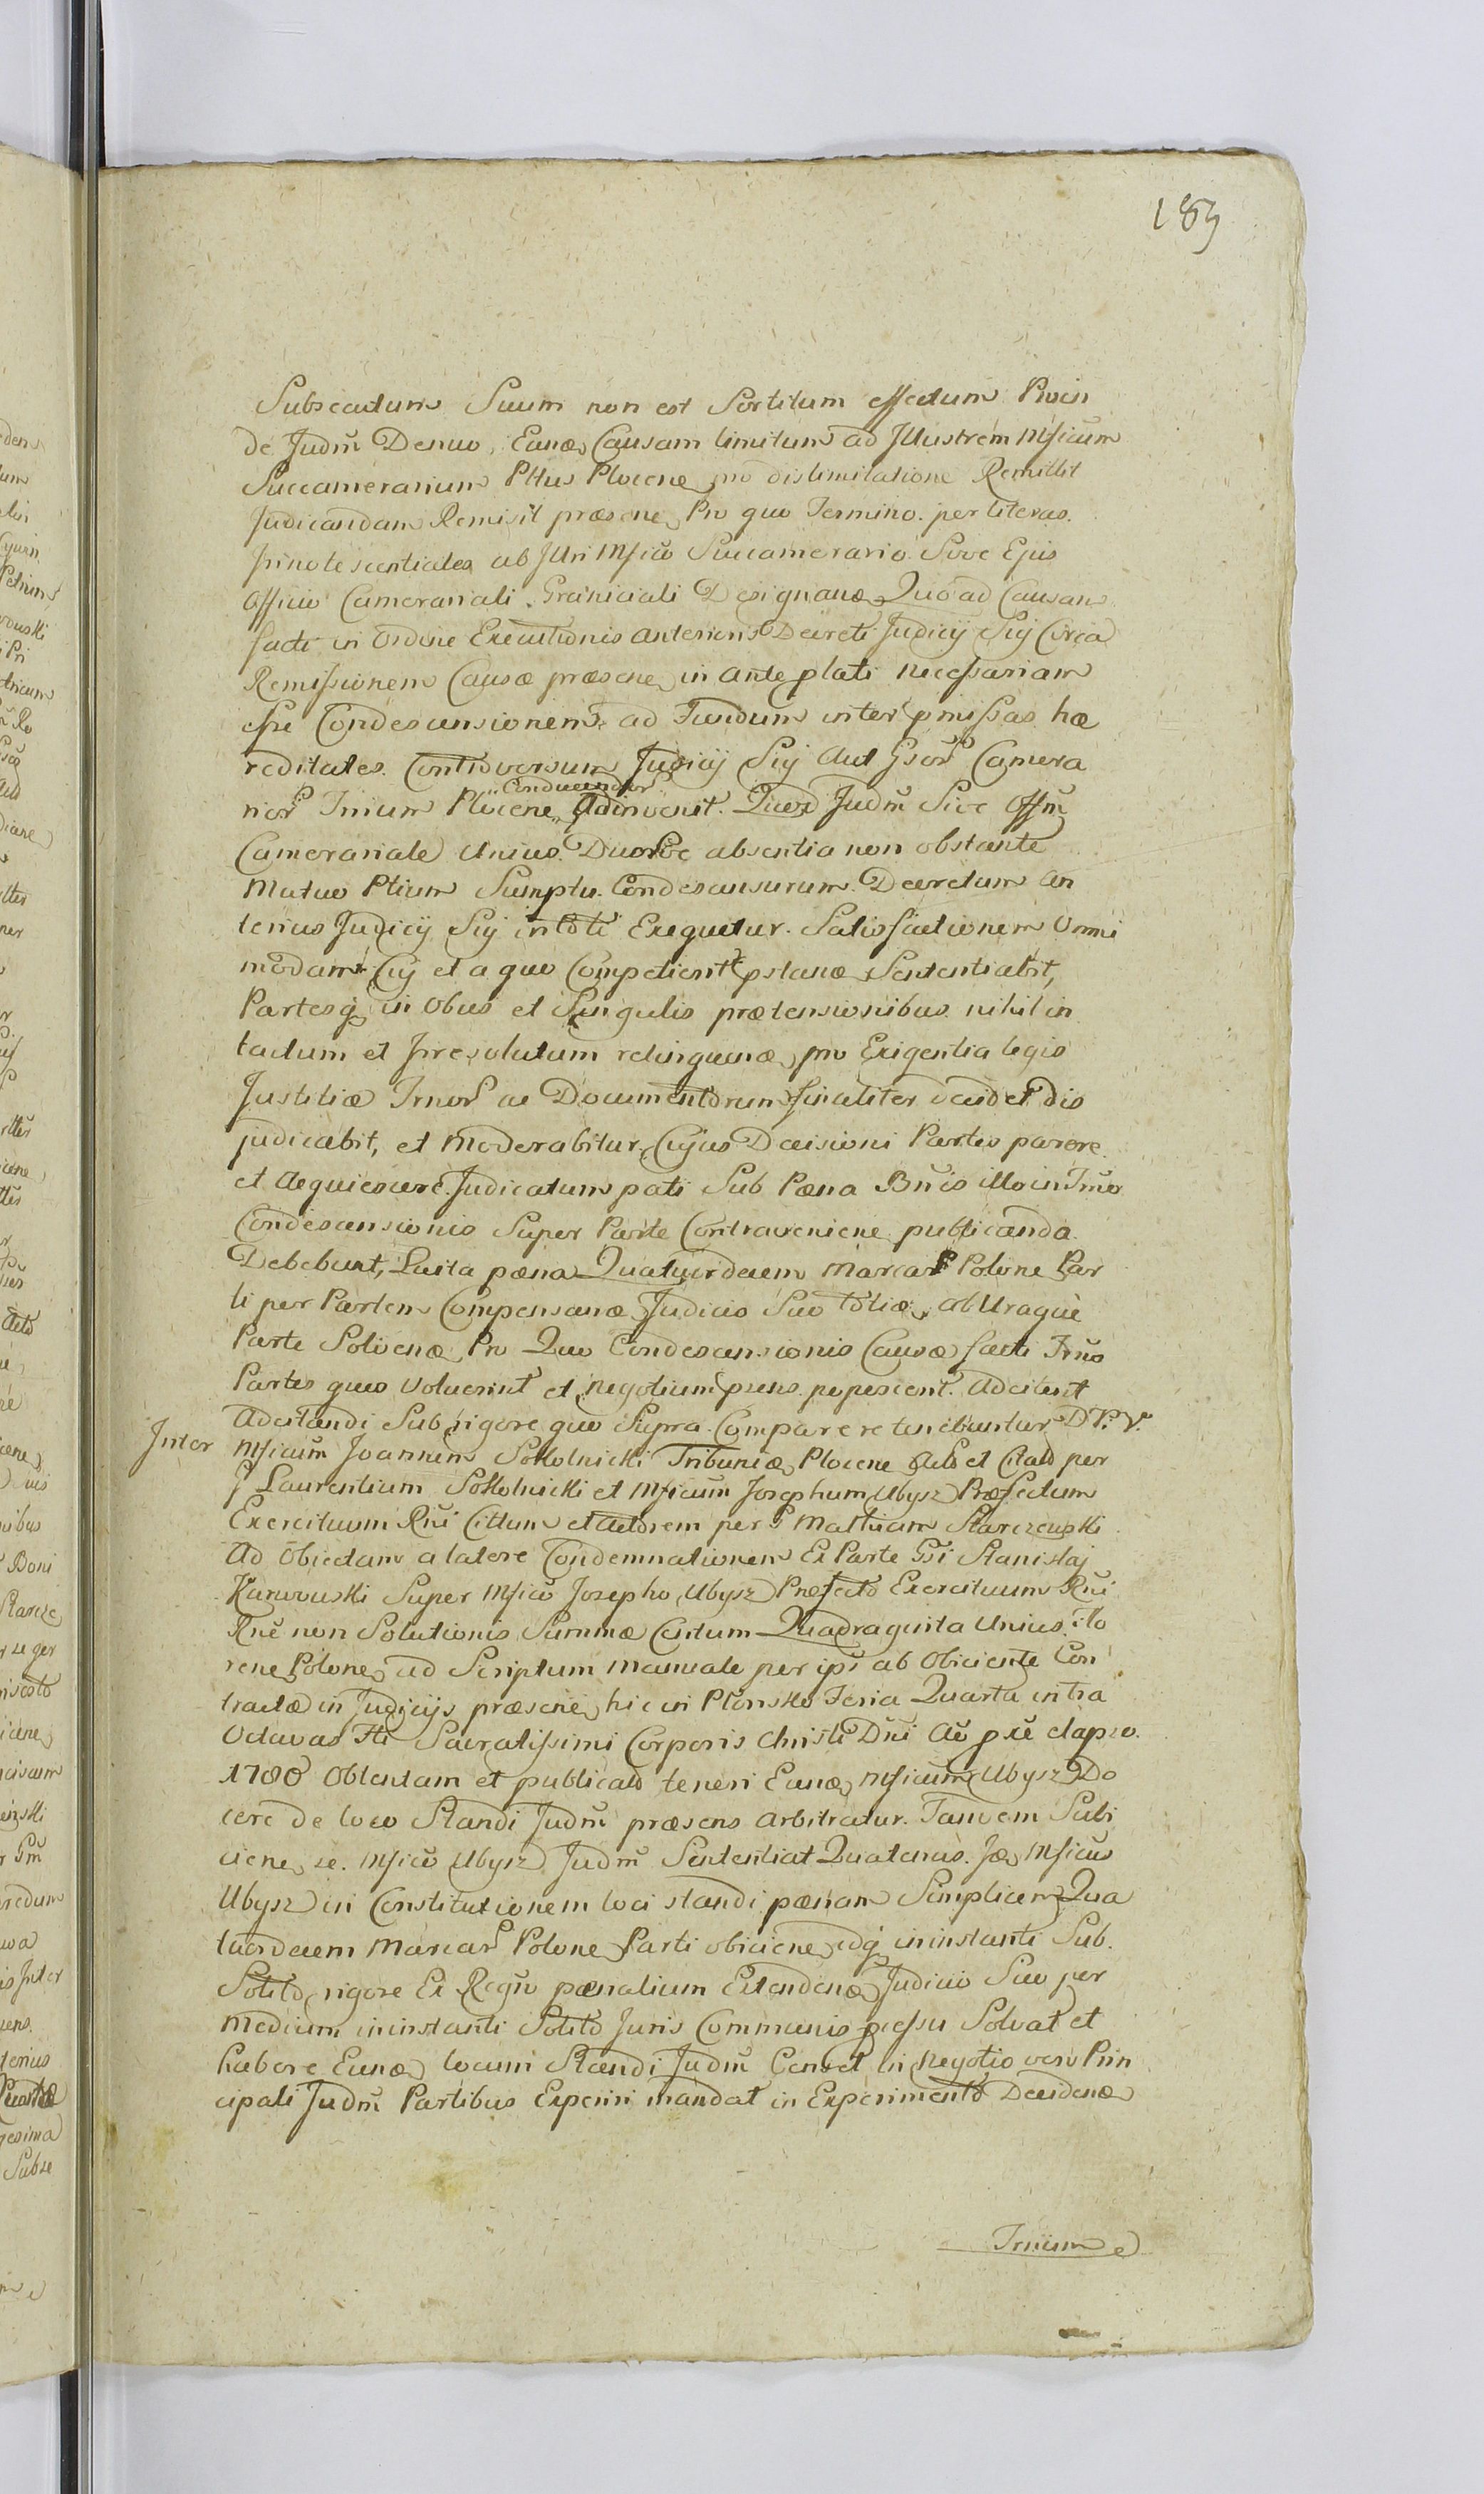 189
Subsecutum Suum non est Sortitum effectum Proin
de Judm Denuo, Eand Causam limitum ad Illustrem Mficum
Succamerarium Pttus Plocen pro dislimitatione Remittit
Judicandam Remisit præsen, Pro quo Termino per literas
Innotescentiales ab Illri Mfico Succamerario Sive Ejus
Officio Camerariali Graniciali Designand, Quo ad Causam
facti in Ordine Executionis anterioris Decreti Judicij Sij Circa
Remissionem Causæ præsen in ante plati necessariam
esse Condescensionem ad Fundum inter pmissas hæ
reditates Controversum Judicij Sij aut Gsor Camera
rior Trrium Plocen, Conducendor Adinvenit. Quod Judm Sive Offm
Camerariale Unius Duorve absentia non obstante
Mutuo Ptium Sumptu Condescensurum Decretum An
terius Judicij Sij in toto Exequetur. Satisfactionem Omni
modam Cij et a quo Competierit pstand Sententiabit,
Partesq in Obus et Singulis prætensionibus nihil in
tactum et Irresolutum relinquend, pro Exigentia legis
Justitiæ Trrior ac Documentorum finaliter decidet dis
judicabit, et Moderabitur, Cujus Decisioni Partes parere
et Acquiescere Judicatum pati Sub Pæna Bnis illo in Trno
Condescensionis Super Parte Contravenien publicanda
Debebunt, Luita pæna Quatuordecem Marcar Polon Par
ti per Partem Compensand Judicio Suo totid ab Utraque
Parte Solvend, Pro Quo Condescensionis Causæ facti Trno
Partes quos Voluerint et negotium puns poposcerit adcitent
Adcitandi Sub rigore quo Supra Comparere tenebuntur D P. V.
Inter Mficum Joannem Sokolnicki Tribunid Plocen Acto et Citato per
G Laurentium Sokolnicki et Mficum Josephum Ubysz Præfectum
Exercituum Rni Cittum et Actorem per G Mathiam Starczewski
Ad Obiectam a latere Condemnationem Ex Parte Gsi Stanislaj
Karwowski Super Mfico Josepho Ubysz Præfecto Exercituum Rni
Rne non Solutionis Summæ Centum Quadraginta Unius Flo
renor Polon ad Scriptum Manuale per ipsi ab Obiciente Con
tractæ in Judicijs præsen hic in Plonsko Feria Quarta intra
Octavas Fti Sacratissimi Corporis Christi Dni Ao pxe elapso
1780 Obtentam et publicato teneri Eand Mficum Ubysz Do
cere de loco Standi Judm præsens Arbitratur. Tandem Subi
cien se Mfico Ubysz Judm Sententiat Quatenus Id Mficus
Ubysz in Constitutionem loci standi pænam Simplicem Qua
tuordecem Marcar Polon Parti obicien, idq in instanti Sub
Solito rigore Ex Regro pænalium Extendend Judicio Suo per
Medium in instanti Solito Juris Communis pcessu Solvat et
habere Eand locum Standi Judm Censet in Negotio vero Prin
cipali Judm Partibus Experiri mandat in Experimento Decidend
Trrium